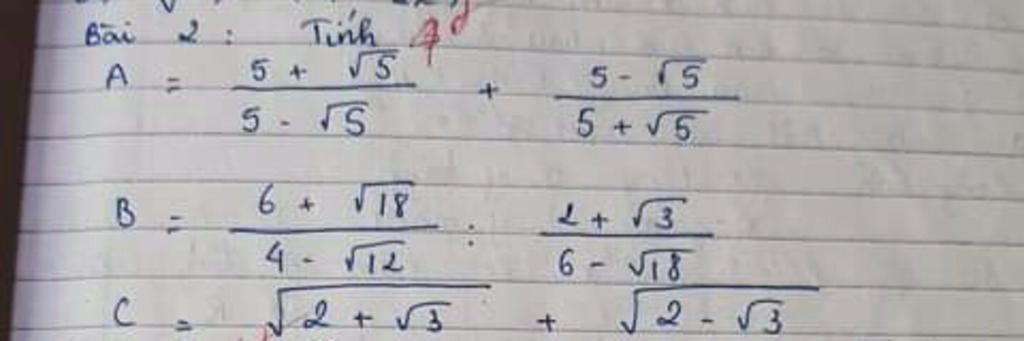 Bài 2 : Tính 4đ
A = (5 + √5)/(5 - √5) + (5 - √5)/(5 + √5)
B = (6 + √18)/(4 - √12) : (2 + √3)/(6 - √18)
C = √(2 + √3) + √(2 - √3)